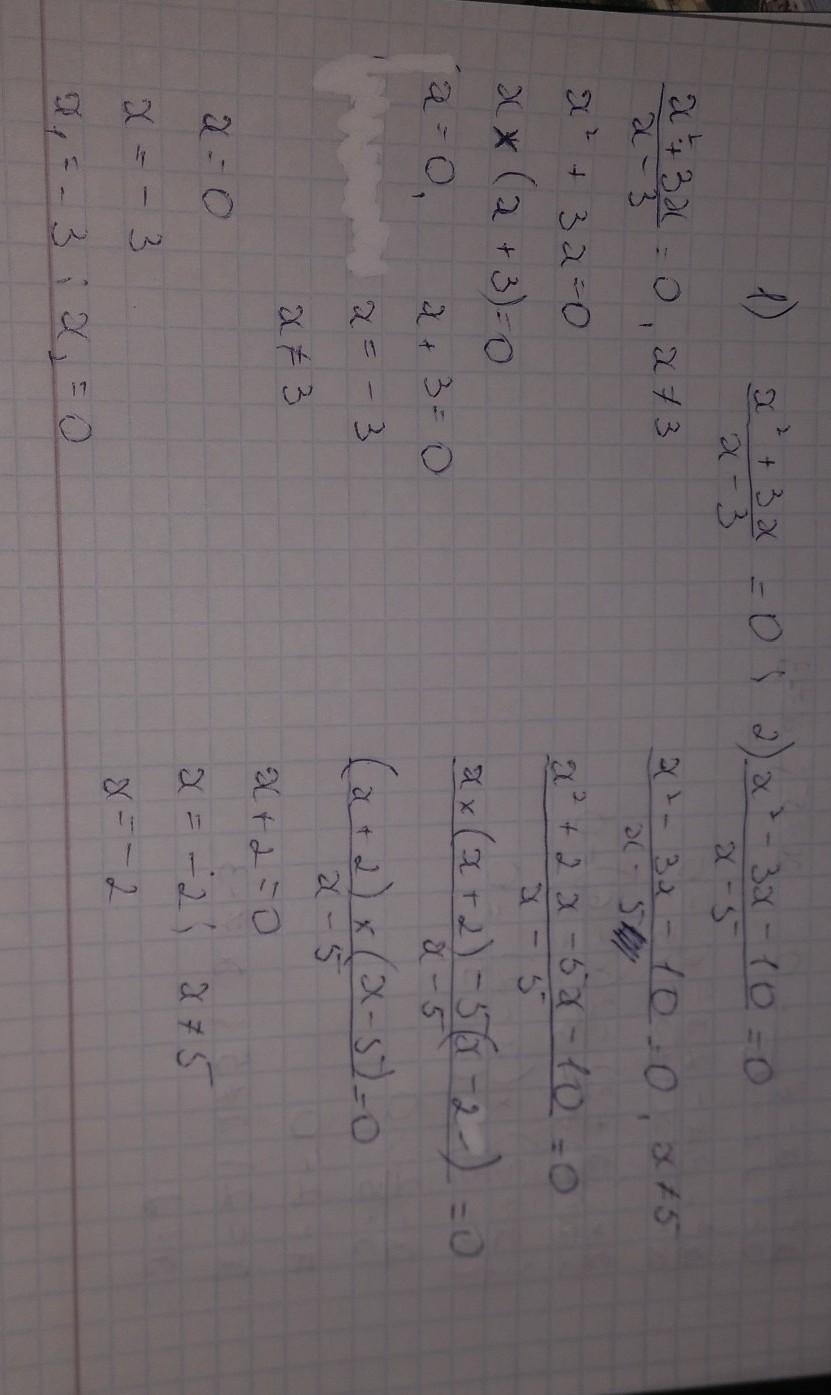 1) x² + 3x / x - 3 = 0 ; 2) x² - 3x - 10 / x - 5 = 0
x² + 3x / x - 3 = 0, x ≠ 3
x² + 3x = 0
x × (x + 3) = 0
x = 0, x + 3 = 0
x = - 3
x ≠ 3
x = 0
x = - 3
x₁ = - 3 ; x₂ = 0
x² - 3x - 10 / x - 5 = 0, x ≠ 5
x² + 2x - 5x - 10 / x - 5 = 0
x × (x + 2) - 5(x - 2 -) / x - 5 = 0
(x + 2) × (x - 5) / x - 5 = 0
x + 2 = 0
x = - 2 ; x ≠ 5
x = - 2